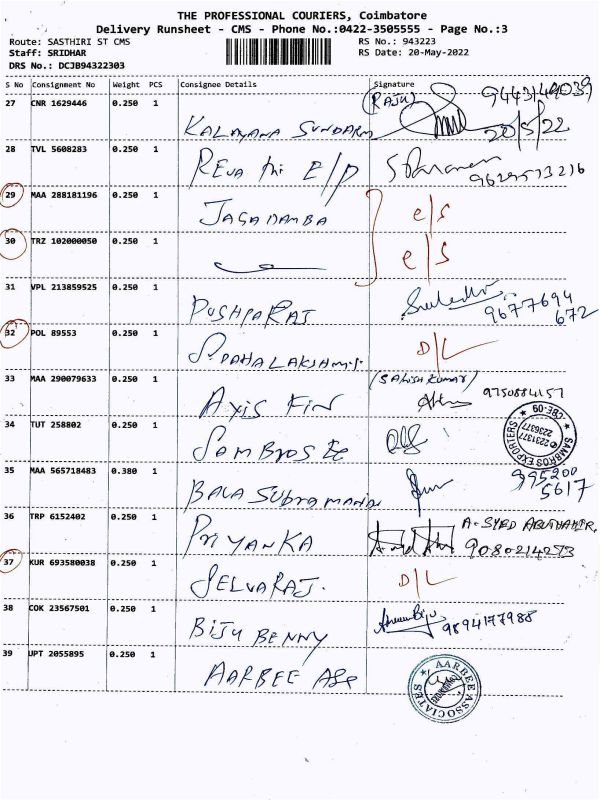 THE PROFESSIONAL COURIERS, Coimbatore
Delivery Runsheet - CMS - Phone No.:0422-3505555 - Page No.:3
Route: SASTHIRI ST CMS RS No.: 943223
Staff: SRIDHAR RS Date: 20-May-2022
DRS No.: DCJB94322303
S No Consignment No Weight PCS Consignee Details Signature
27 CNR 1629446 0.250 1 KALAYANA SUNDARM (RAJU) 9443149039
20/5/22
28 TVL 5608283 0.250 1 REVA thi E/P 9629573216
29 MAA 288181196 0.250 1 JAGADAMBA e/s
30 TRZ 102000050 0.250 1 e/s
31 VPL 213859525 0.250 1 PUSHPARAJ 9677694
672
32 POL 89553 0.250 1 D/L
33 MAA 290079633 0.250 1 AXIS FIN (SATHISH KUMAR) 9750884157
34 TUT 258802 0.250 1 SAMBROS EE
★ CBE-09 ★ SAMBROS EXPORTERS
2231377
2236377
35 MAA 565718483 0.380 1 BALA SUBRAMANIAN 995200
5617
36 TRP 6152402 0.250 1 PRIYANKA A. SYED ABUTHAHIR.
9080214273
37 KUR 693580038 0.250 1 SELVARAJ. D/L
38 COK 23567501 0.250 1 BIJU BENNY 9894177988
39 UPT 2055895 0.250 1 AARBEE ASS
★ AARBEE ASSOCIATES